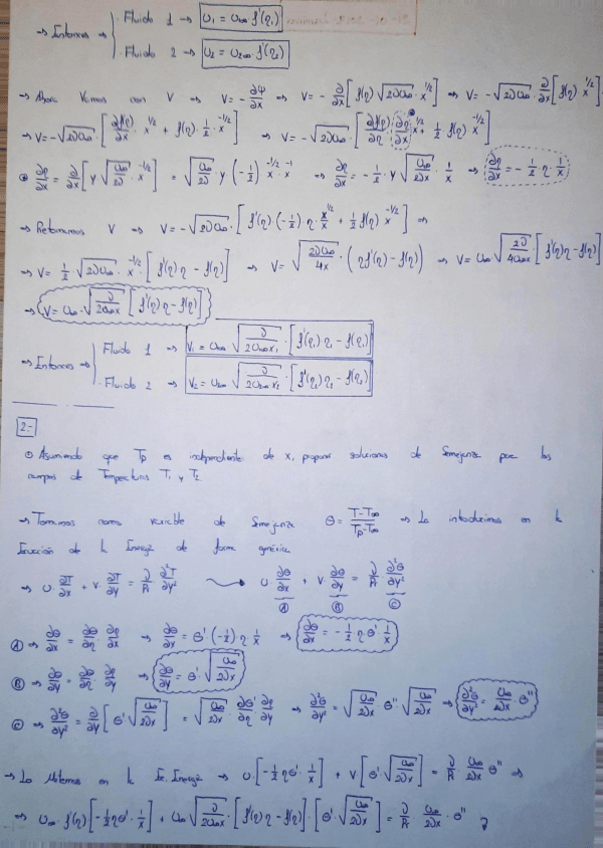 → Entonces → Fluido 1 → U₁ = U₁∞ f'(η₁)
Fluido 2 → U₂ = U₂∞ · f'(η₂)
→ Ahora Vamos con V → V = - ∂Ψ/∂x → V = - ∂/∂x [f(η) √(2νU∞) · x^(1/2)] → V = - √(2νU∞) ∂/∂x [f(η) x^(1/2)]
→ V = -√(2νU∞) · [∂f(η)/∂x · x^(1/2) + f(η) · 1/2 · x^(-1/2)] → V = - √(2νU∞) · [∂f(η)/∂η · ∂η/∂x · x^(1/2) + 1/2 · f(η) x^(-1/2)]
∂η/∂x = ∂/∂x [y √(U∞/2ν) · x^(-1/2)] = √(U∞/2ν) · y (-1/2) x^(-1/2) · x^(-1) → ∂η/∂x = - 1/2 · y √(U∞/2νx) · 1/x → ∂η/∂x = - 1/2 η · 1/x
→ Retomamos V → V = -√(2νU∞) · [f'(η) · (-1/2) · η · x^(1/2)/x + 1/2 f(η) x^(-1/2)] ⇒
→ V = 1/2 · √(2νU∞) · x^(-1/2) · [f'(η) η - f(η)] → V = √(2νU∞/4x) · (η f'(η) - f(η)) → V = U∞ · √(2ν/4U∞x) [f'(η) η - f(η)]
→ V = U∞ · √(ν/2U∞x) [f'(η) η - f(η)]
→ Entonces → Fluido 1 → V₁ = U₁∞ √(ν/2U₁∞x₁) · [f'(η₁) η₁ - f(η₁)]
Fluido 2 → V₂ = U₂∞ √(ν/2U₂∞x₂) · [f'(η₂) η₂ - f(η₂)]
2.-
Asumiendo que Tp es independiente de x, proponer soluciones de Semejanza para los
campos de Temperaturas T₁ y T₂
→ Tomamos como variable de Semejanza θ = (T - T∞)/(Tp - T∞) → La introducimos en la
Ecuación de la Energía de forma genérica
→ U · ∂T/∂x + V · ∂T/∂y = ν/Pr ∂²T/∂y² → U ∂θ/∂x + V · ∂θ/∂y = ν/Pr ∂²θ/∂y²
A B C
A → ∂θ/∂x = ∂θ/∂η · ∂η/∂x → ∂θ/∂x = θ' (-1/2) η 1/x → ∂θ/∂x = - 1/2 η θ' 1/x
B → ∂θ/∂y = ∂θ/∂η · ∂η/∂y → ∂θ/∂y = θ' √(U∞/2νx)
C → ∂²θ/∂y² = ∂/∂y [θ' √(U∞/2νx)] = √(U∞/2νx) · ∂θ'/∂η ∂η/∂y → ∂²θ/∂y² = √(U∞/2νx) θ'' √(U∞/2νx) → ∂²θ/∂y² = U∞/2νx · θ''
→ Lo Metemos en la Ec. Energía → U · [-1/2 η θ' · 1/x] + V [θ' · √(U∞/2νx)] = ν/Pr U∞/2νx θ'' ⇒
⇒ U∞ · f'(η) [-1/2 η θ' · 1/x] + U∞ √(ν/2U∞x) · [f'(η) η - f(η)] · [θ' · √(U∞/2νx)] = ν/Pr U∞/2νx · θ''